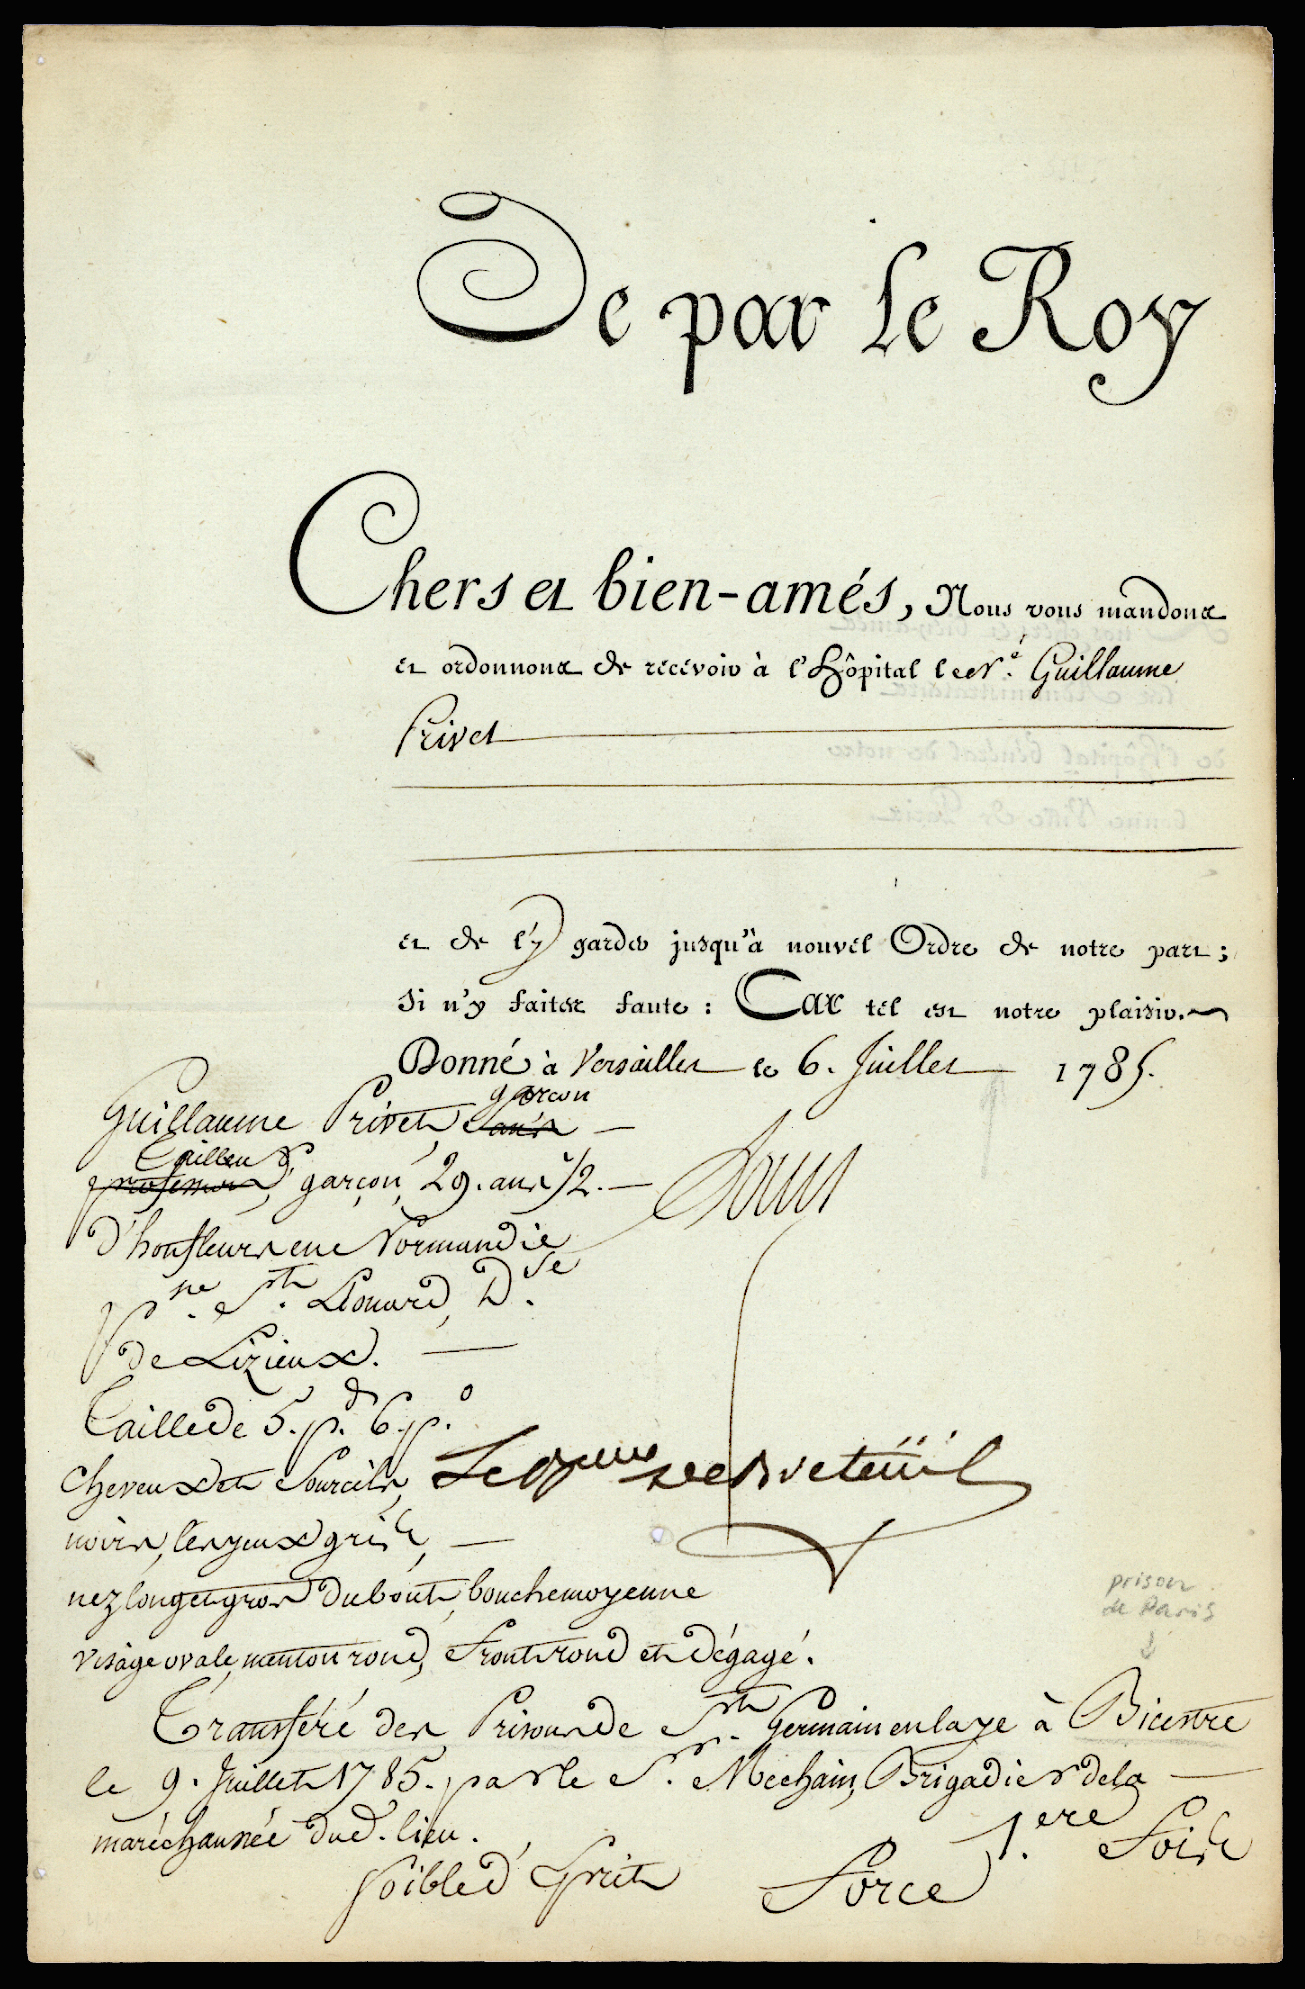 De par Le Roy
Chers et bien-amés, Nous vous mandons
et ordonnons de recevoir à l'hôpital le né. Guillaume
Privet
et de l'y garder jusqu'à nouvel Ordre de notre part ;
si n'y faites faute : Car tel est notre plaisir.
Donné à Versailles le 6. Juillet 1785.
Guillaume Privet garçon
Tailleur, garçon, 29. ans 1/2.
Louis
d'honfleur en Normandie
Psse. St. Léonard, Dse
de Lizieux.
Taille de 5. pds 6. po
cheveux et Sourcils
Le Bon de Breteüil
noirs, les yeux gris,
nez long et gros du bout, bouche moyenne
visage ovale, menton rond, front rond et dégagé.
prison
de Paris
Transféré des Prisons de St. Germain en laye à Bicestre
le 9. Juillet 1785. par le S. Mechain, Brigadier de la
maréchaussée dud. lieu.
1.ere fois
foible d'Esprit
Force